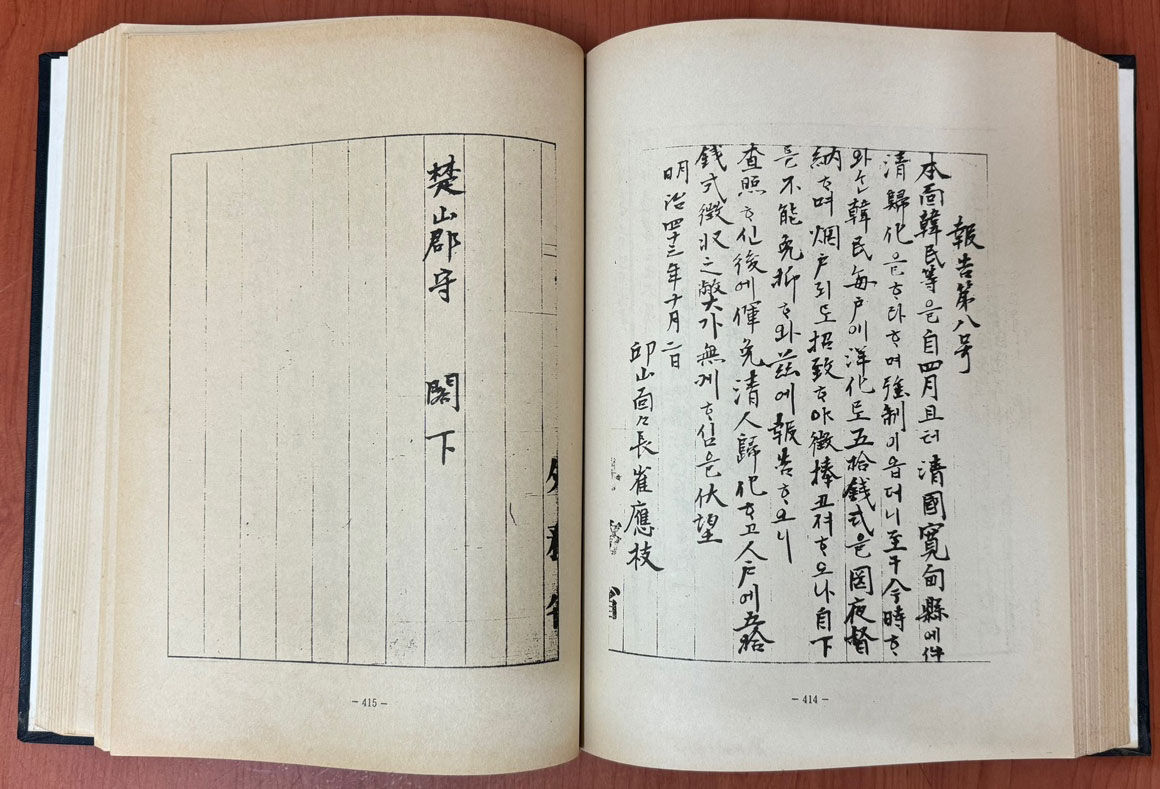 報告第八号
本面韓民等은自四月且터淸國寬甸縣에件
淸歸化은ᄒᆞ라ᄒᆞ며强制이읍더니至于今時ᄒᆞ
와ᄂᆞᆫ韓民每戶에洋化로五拾錢式을罔夜督
納ᄒᆞ며烟戶되도招致ᄒᆞ야徵捧코져ᄒᆞ오나自下
로不能免抑ᄒᆞ와玆에報告ᄒᆞ오니
査照ᄒᆞ신後에俾免淸人歸化ᄒᆞ고人戶에五拾
錢式徵收之弊가無게ᄒᆞ심을伏望
明治四十三年十月二日
邱山面々長崔應枝
- 414 -
楚山郡守 閣下
- 415 -